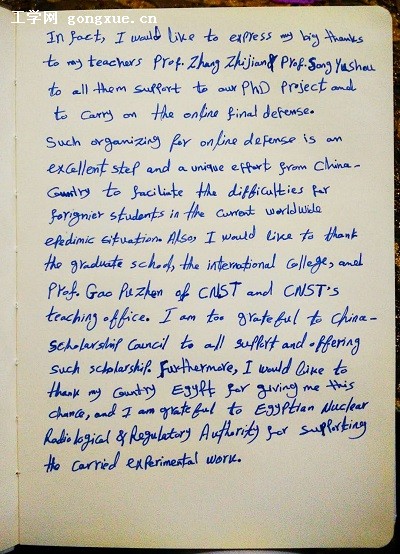 工学网 gongxue.cn
In fact, I would like to express my big thanks
to my teachers Prof. Zhang Zhijian & Prof. Song Yushou
to all them support to our PhD project and
to carry on the online final defense.
Such organizing for online defense is an
excellent step and a unique effort from China-
Country to faciliate the difficulties for
forignier students in the current worldwide
epedimic situation. Also, I would like to thank
the graduate school, the international College, and
Prof. Gao Puzhen of CNST and CNST's
teaching office. I am too grateful to China-
scholarship Council to all support and offering
such scholarship. Furthermore, I would like to
thank my Country Egypt for giving me this
chance, and I am grateful to Egyptian Nuclear
Radiological & Regulatory Authority for supporting
the carried experimental work.